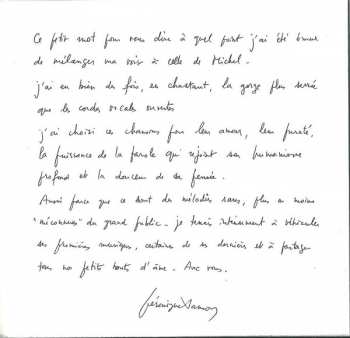 Ce petit mot pour vous dire à quel point j'ai été émue
de mélanger ma voix à celle de Michel.
j'ai eu bien des fois, en chantant, la gorge plus serrée
que les cordes vocales ouvertes
j'ai choisi ces chansons pour leur amour, leur pureté,
la puissance de la parole qui rejoint son humanisme
profond et la douceur de sa pensée.
Aussi parce que ce sont des mélodies rares, plus ou moins
"méconnues" du grand public - je tenais intensément à véhiculer
ses premières musiques, certaines de ses dernières et à partager
tous nos petits bouts d'âme. Avec vous.
Véronique Sanson